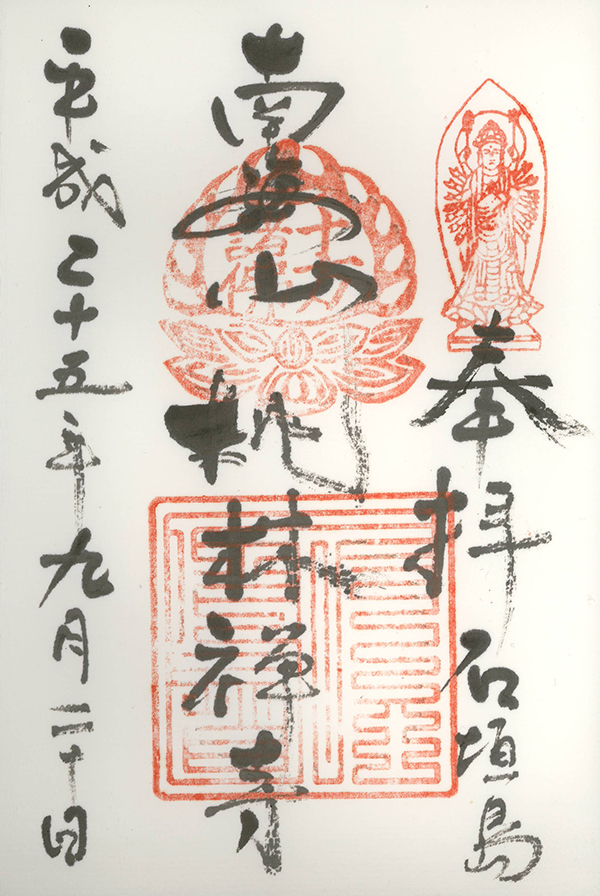 奉拝 石垣島
南海山 桃林禅寺
平成二十五年九月二十日